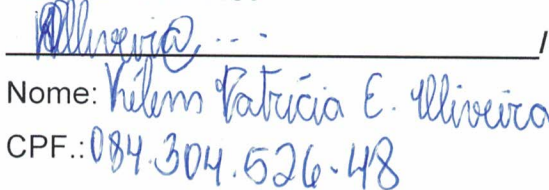 Nome: Kélem Patrícia E. Oliveira
CPF.: 084.304.526-48